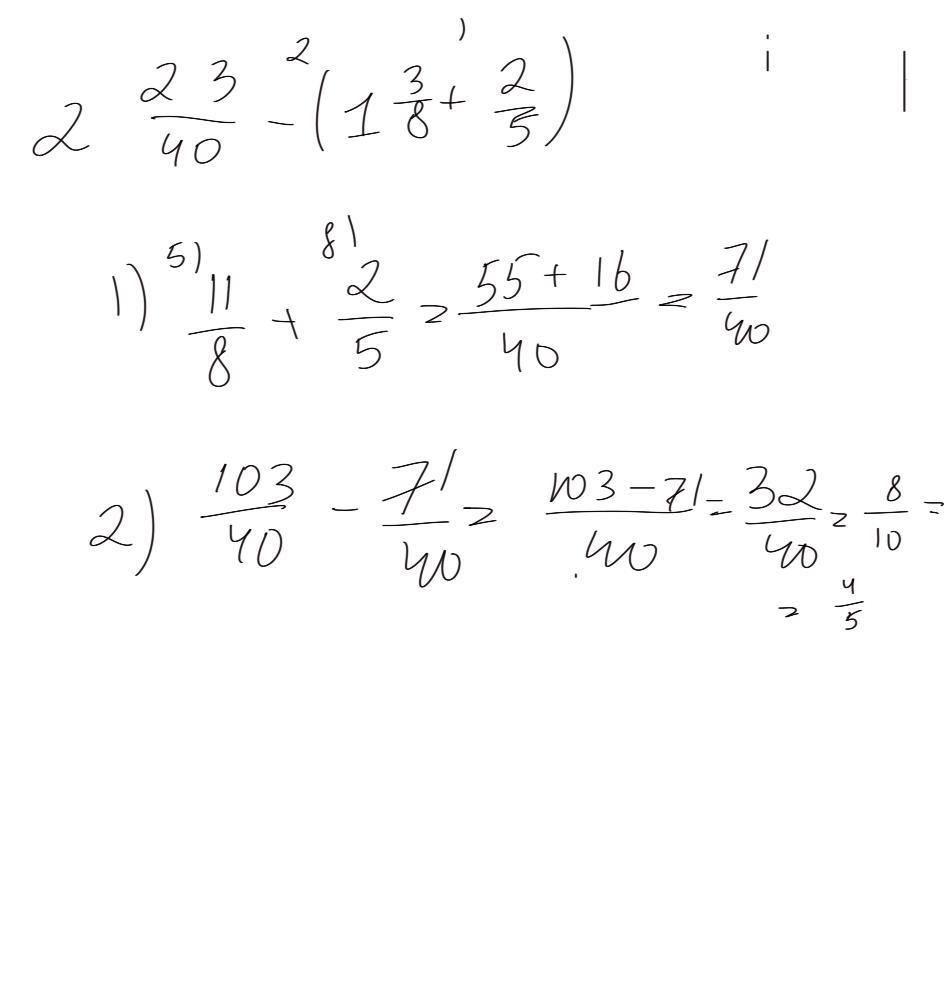 2 23/40 - (1 3/8 + 2/5)
1) 11/8 + 2/5 = 55+16/40 = 71/40
2) 103/40 - 71/40 = 103-71/40 = 32/40 = 8/10 =
= 4/5